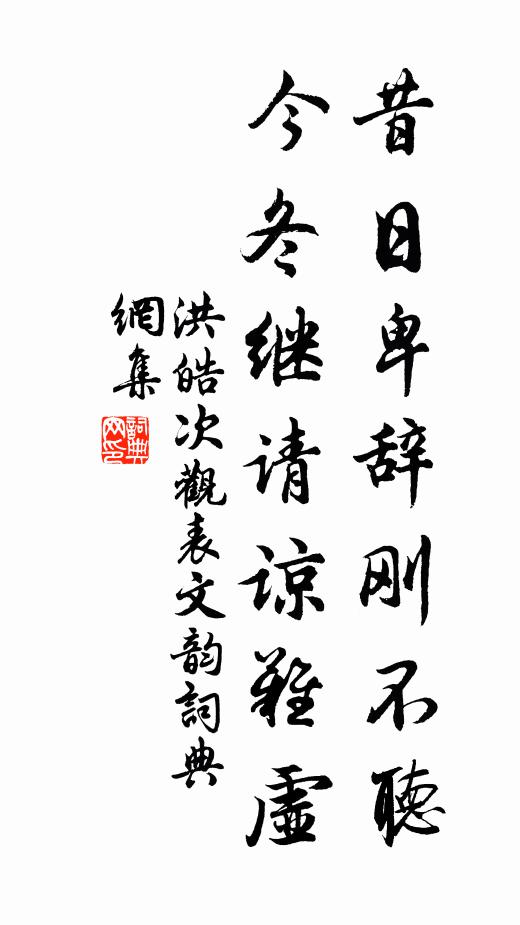 昔日卑辞刚不聽
今冬继请谅難虛
洪皓次觀表文韵詞典
網集
詞典网印